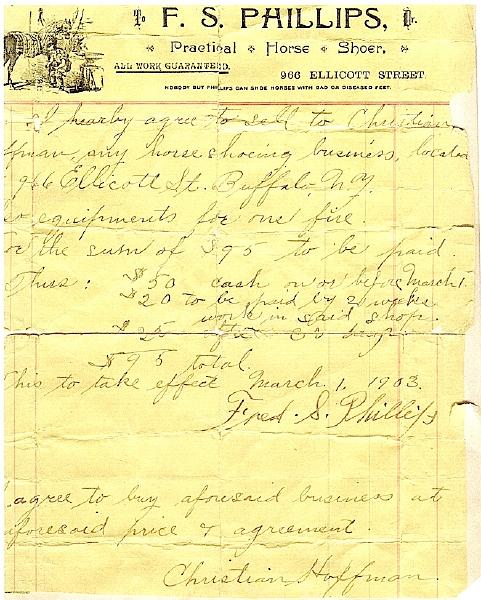 To F. S. PHILLIPS, Dr.
Practical Horse Shoer,
ALL WORK GUARANTEED.
966 ELLICOTT STREET
NOBODY BUT PHILLIPS CAN SHOE HORSES WITH BAD OR DISEASED FEET.
I hearby agree to sell to Christian
ffman, any horseshoeing business, locate
966 Ellicott St. Buffalo, N.Y.
equipments for one fire.
or the sum of $95 to be paid.
Thus: $50 cash on or before March 1.
$20 to be paid by 2 weeks
work in said shop.
$25 after 30 days
$95 total.
This to take effect March 1, 1903.
Fred. S. Phillips
I agree to buy aforesaid business at
aforesaid price & agreement.
Christian Hoffman.